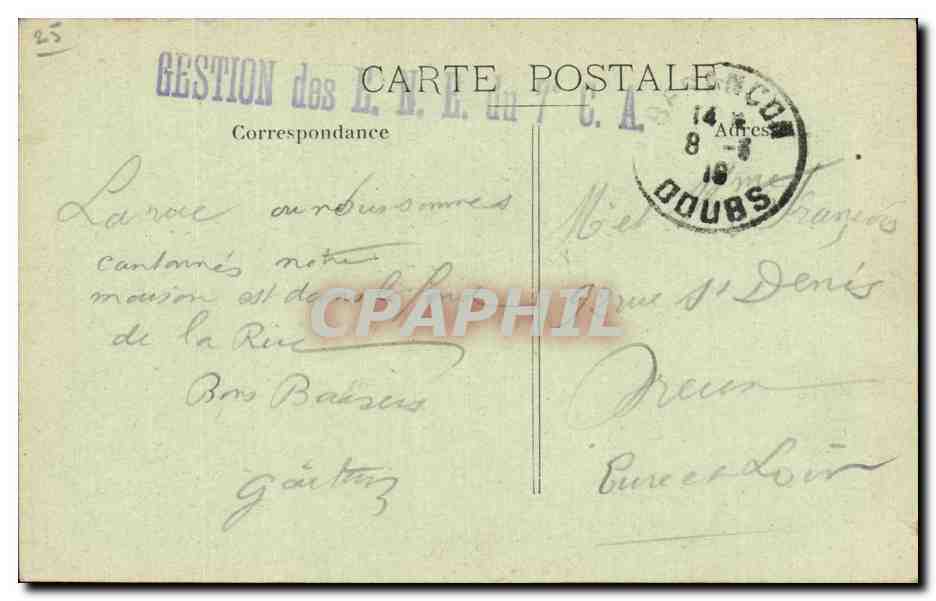 25
GESTION des E. N. E. du 7e C. A.
CARTE POSTALE
Correspondance
Adresse
BESANCON
14
8 - 
19
DOUBS
La rue ou nous sommes
cantonnés notre
maison est dans le fond
de la Rue
Bons Baisers
Mr et Mme François
rue St Denis
Dreux
Eure et Loir
CPAPHIL